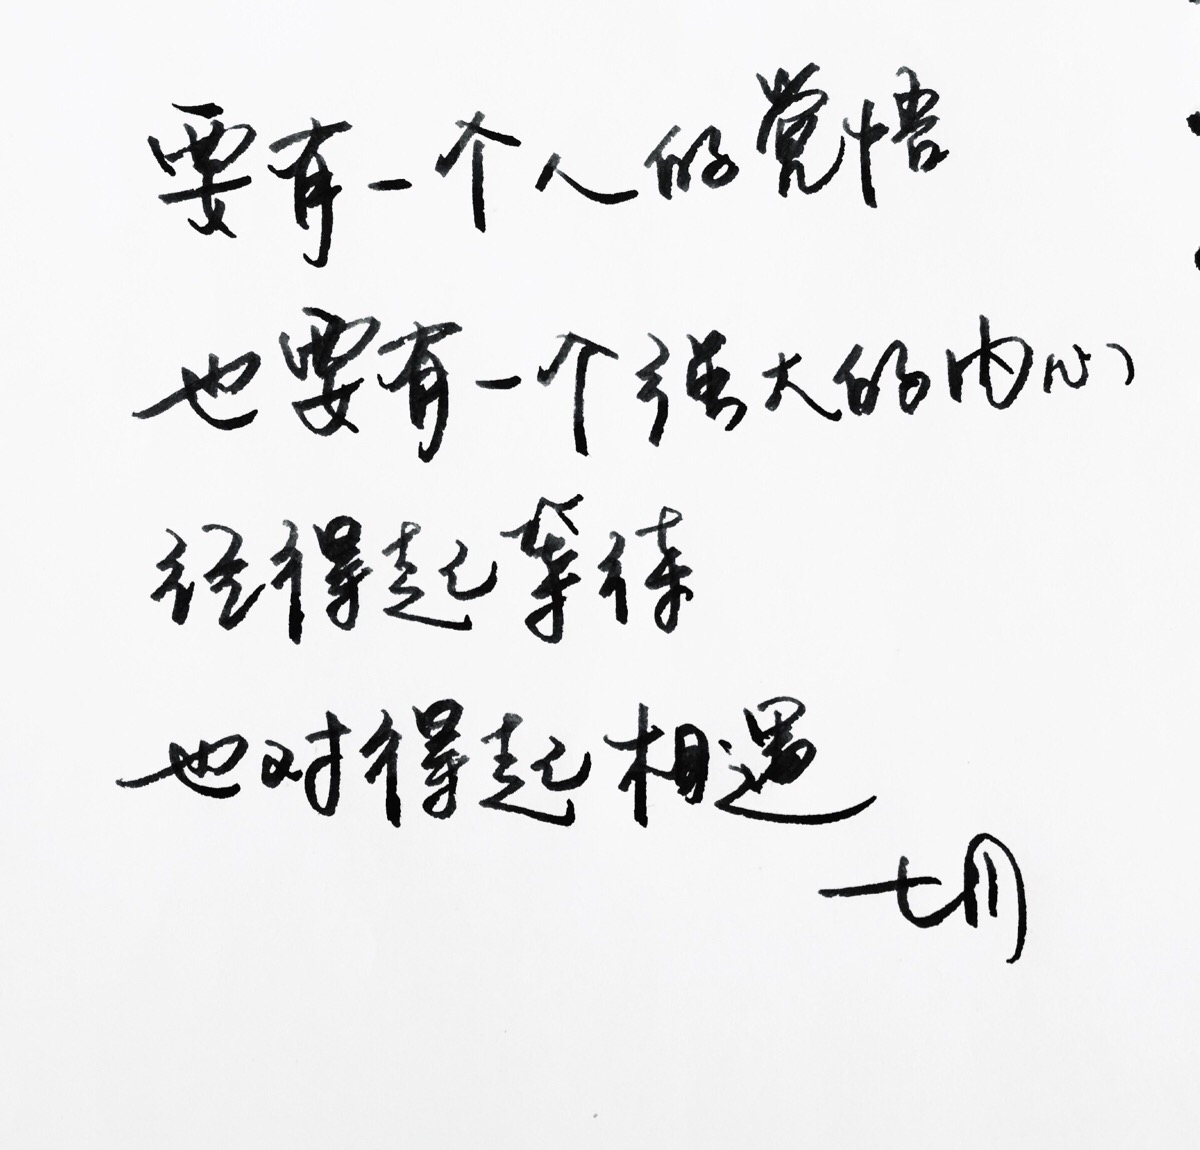 要有一个人的觉悟
也要有一个强大的内心
经得起等待
也对得起相遇
七月